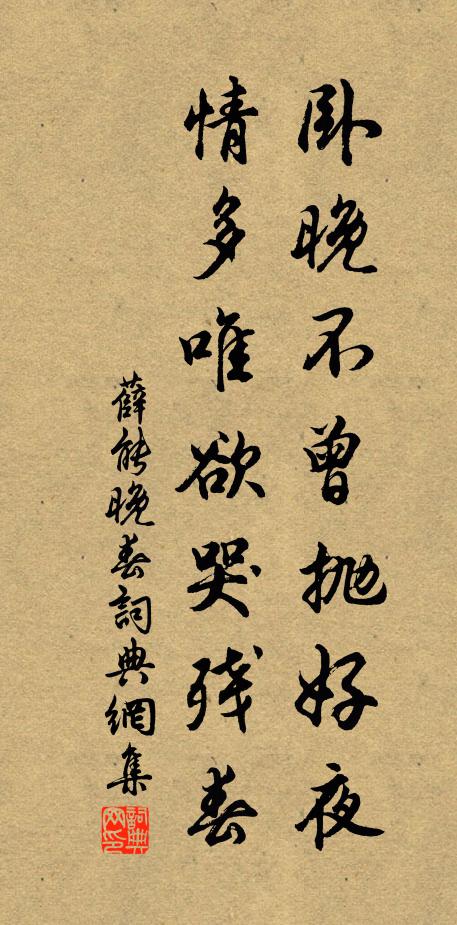 卧晚不曾抛好夜
情多唯欲哭残春
薛能晚春詞典網集
詞典网印